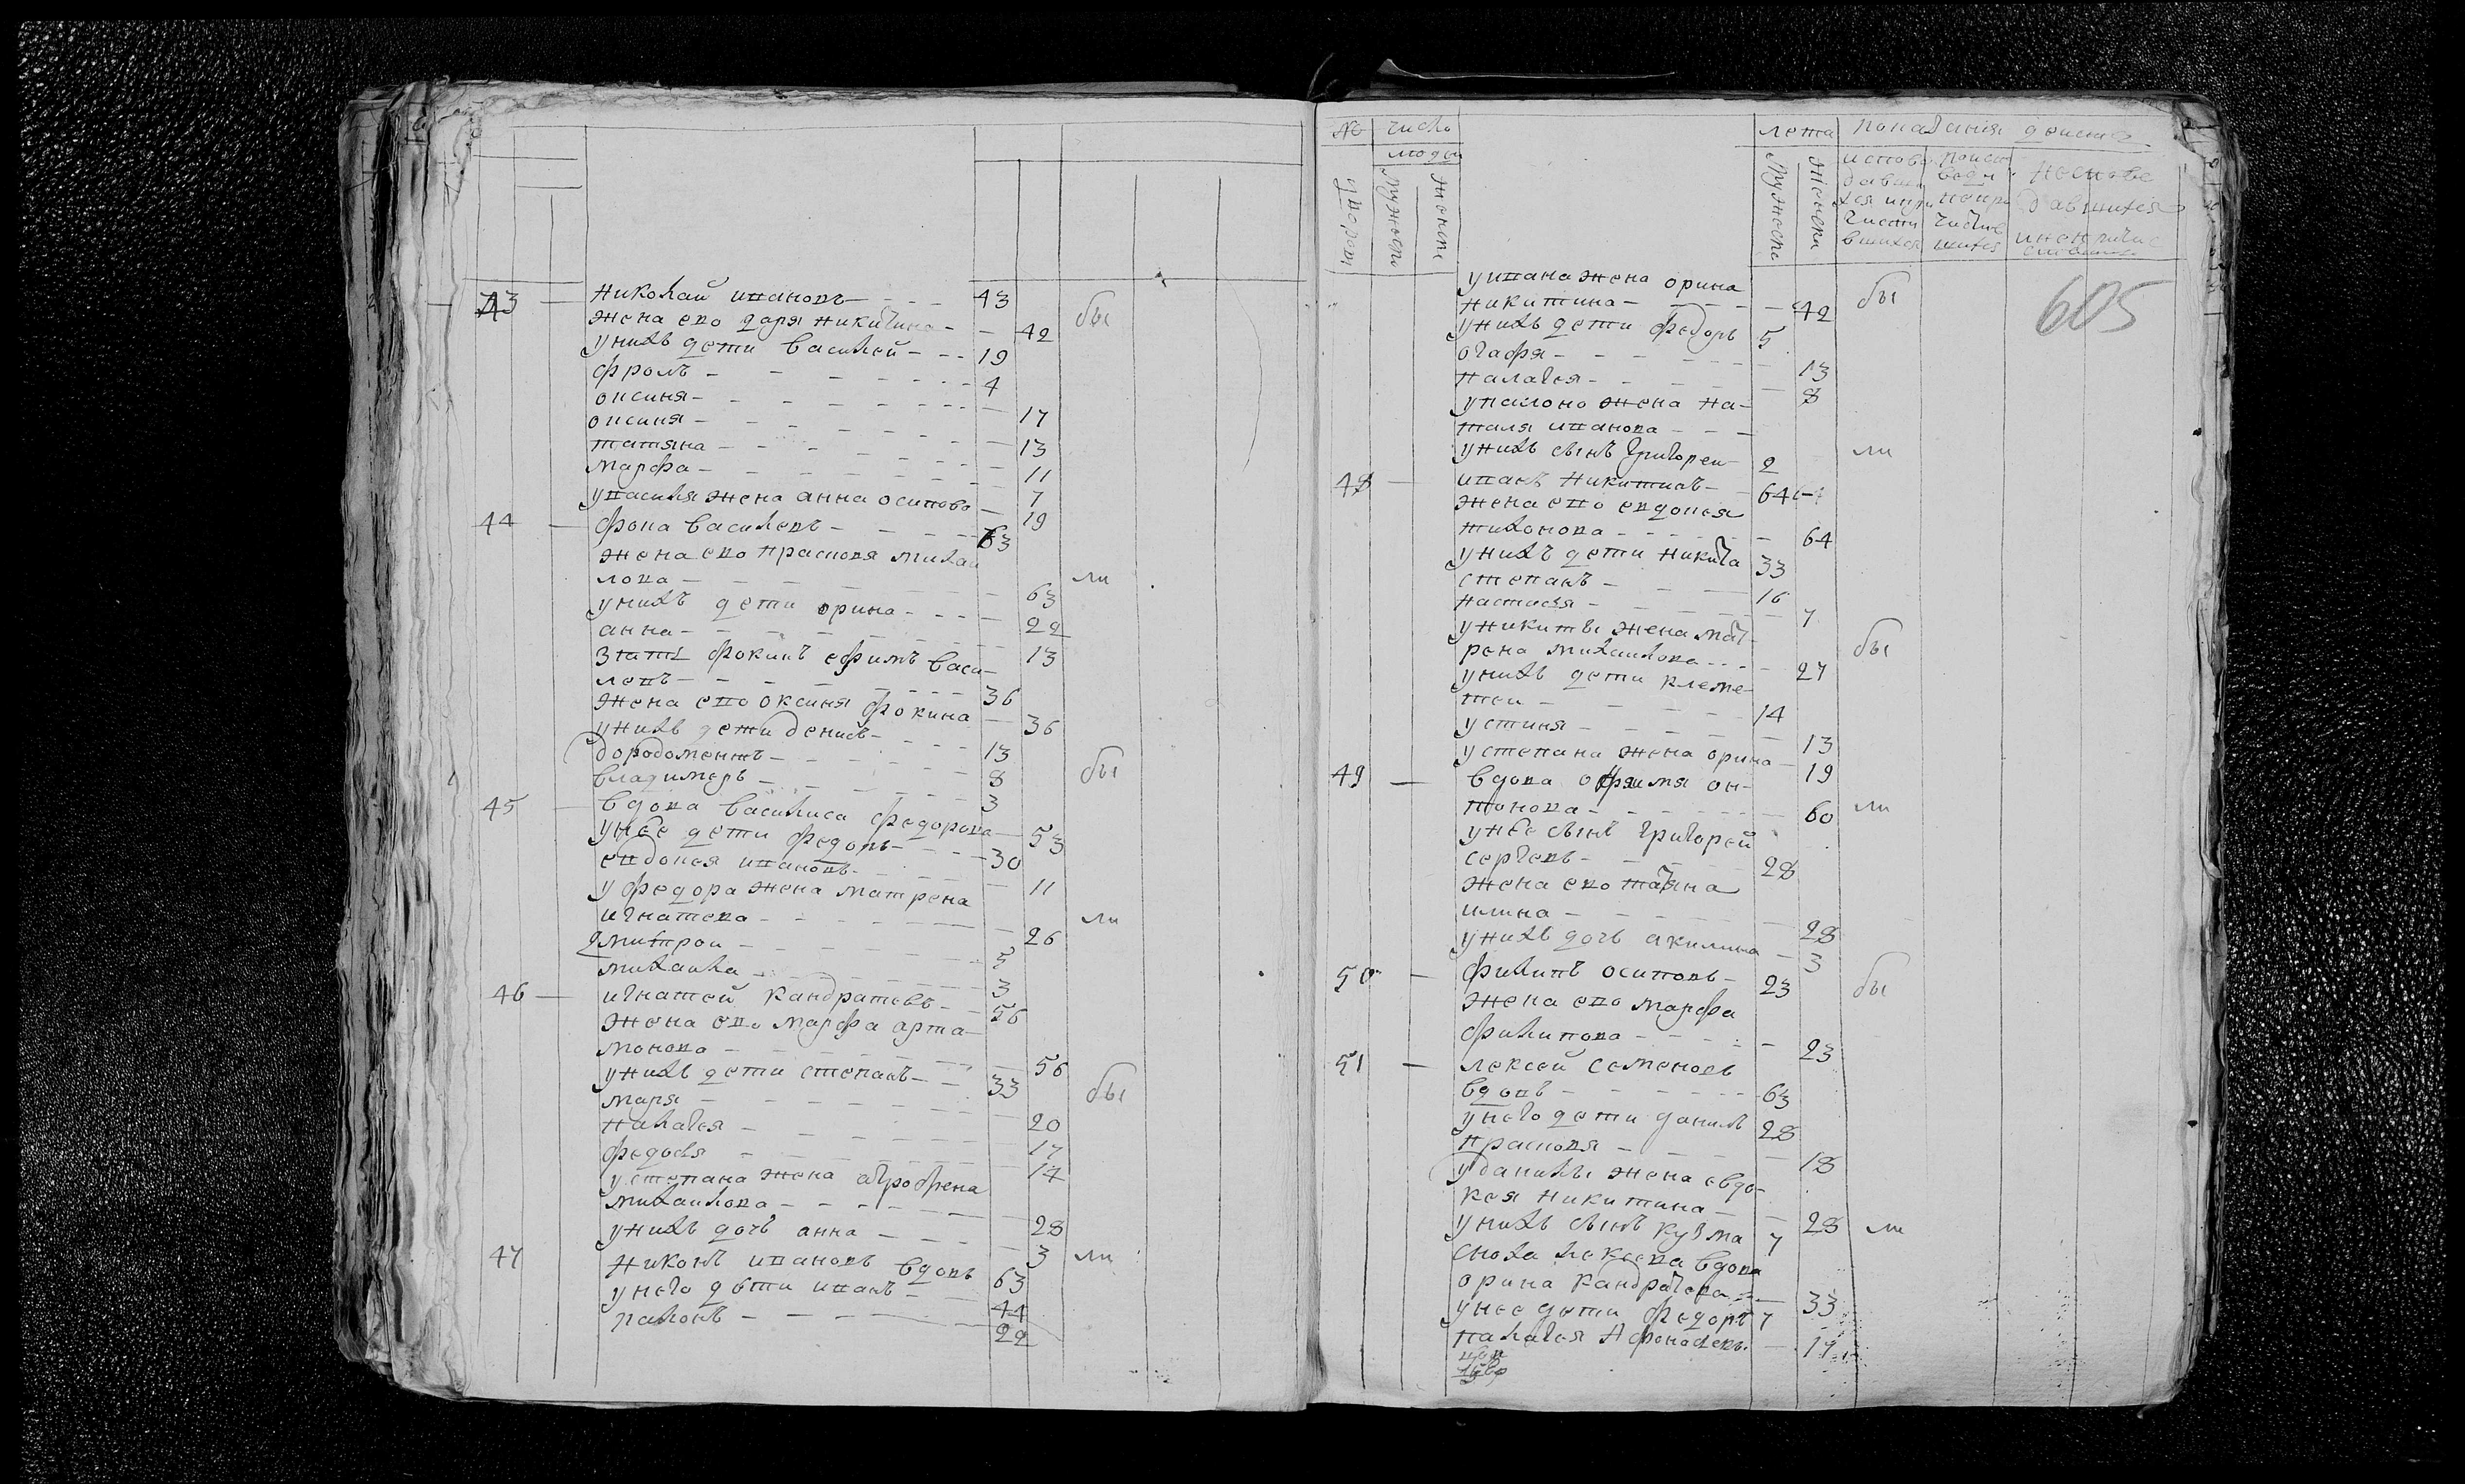 43 Николай ивановъ 43
жена ево даря никитина 42 бы
у нихъ дети василей 19
фролъ 4
оксиня 17
оксиня 13
татяна 11
марфа 7
у василя жена анна осипова 19
44 фока василевъ 63
жена ево прасковя михаи
лова 63 ли
у нихъ дети орина 22
анна 13
зтать фокинъ ефимъ васи
левъ 36
жена ево оксиня фокина 36
у нихъ дети денисъ 13
дородоментъ 8 бы
владимеръ 3
45 вдова василиса федорова 53
у нее дети федоръ 30
евдокея ивановъ 11
у федора жена матрена
игнатева 26 ли
дмитрои 5
михаила 3
46 игнатей кандратевъ 56
жена ево марфа арта
монова 56
у нихъ дети степанъ 33
маря 20 бы
палагея 17
федося 14
у степана жена аграфена
михаилова 28
у нихъ дочь анна 3
47 никонъ ивановъ вдовъ 63 ли
у него дети иванъ 44
палонъ 22
№ число лета показания действ
людеи
дворовъ мужеска женска мужеска женска испове давши хся и при части вшихся
поисп веди непри части шихся
неиспове давшихся и непричас тившихся
605
у ивана жена орина
никитина 42 бы
у нихъ дети федоръ 5
огафя 13
палагея 8
у палона жена на
таля иванова
у нихъ сынъ григореи 2 ли
48 иванъ никитинъ 64
жена ево евдокея
тихонова 64
у нихъ дети никита 33
степанъ 16
настася 7
у никиты жена мат
рена михаилова 27 бы
у нихъ дети клеме
теи 14
устиня 13
у степана жена орина 19
49 вдова офимя он
тонова 60 ли
у нее сынъ григорей
сергеевъ 28
жена ево татяна
илина 28
у нихъ дочь акилина 3
50 филипъ осиповъ 23 бы
жена ево марфа
филипова 23
51 лексей семеновъ
вдовъ 63
у него дети данилъ 28
прасковя 18
у данилы жена евдо
кея никитина 28 ли
у нихъ сынъ кузма 7
сноха лексева вдова
орина кандратева 33
у нее дети федоръ 7
палагея Афонасевъ 19